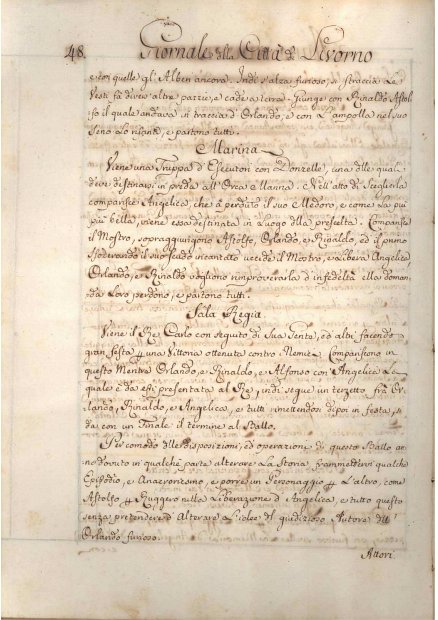 48.
Giornale della Città di Livorno
e con quelle gl' Alberi ancora. Indi s'alza furioso, si straccia le
Vesti fà diverse altre pazzie, e cade a terra. Giunge con Rinaldo Astol-
fo il quale andava in traccia d' Orlando, e con l'ampolla nel suo
seno lo risana, e partono tutti.
Marina
Viene una Truppa d' Esecutori con Donzelle, una delle quali
deve destinarsi in preda all' Orca Marina. Nell' atto di sceglierla
comparisce Angelica, che à perduto il suo Medoro, e come la più
più bella, viene essa destinata in luogo della prescelta. Comparisce
il Mostro, sopraggiungono Astolfo, Orlando, e Rinaldo, ed il primo
sfoderando il suo scudo incantato uccide il Mostro, e libera Angelica
Orlando, e Rinaldo vogliono rimproverarla d' infedeltà ella doman-
da loro perdono, e partono tutti.
Sala Regia
Viene il Rè Carlo con seguito di sua Gente, ed altri facendo
gran festa per una Vittoria ottenuta contro Nemici. Compariscono in
questo Mentre Orlando, e Rinaldo, e Alfonso con Angelica la
quale è da essi presentata al Rè, indi segue un terzetto frà Or-
lando, Rinaldo, e Angelica, e tutti rimettendosi dopoi in festa, si
dà con un Finale il termine al Ballo.
Per comodo delle disposizioni, ed operazioni di questo Ballo an-
no dovuto in qualche parte alterare la Storia, frammettervi qualche
Episodio, e Anacronismo, e porre un Personaggio per l'altro, come
Astolfo per Ruggero nella Liberazione d' Angelica, e tutto questo
senza pretendere d' alterare l' idee del giudizioso Autore dell'
Orlando furioso.
Attori.